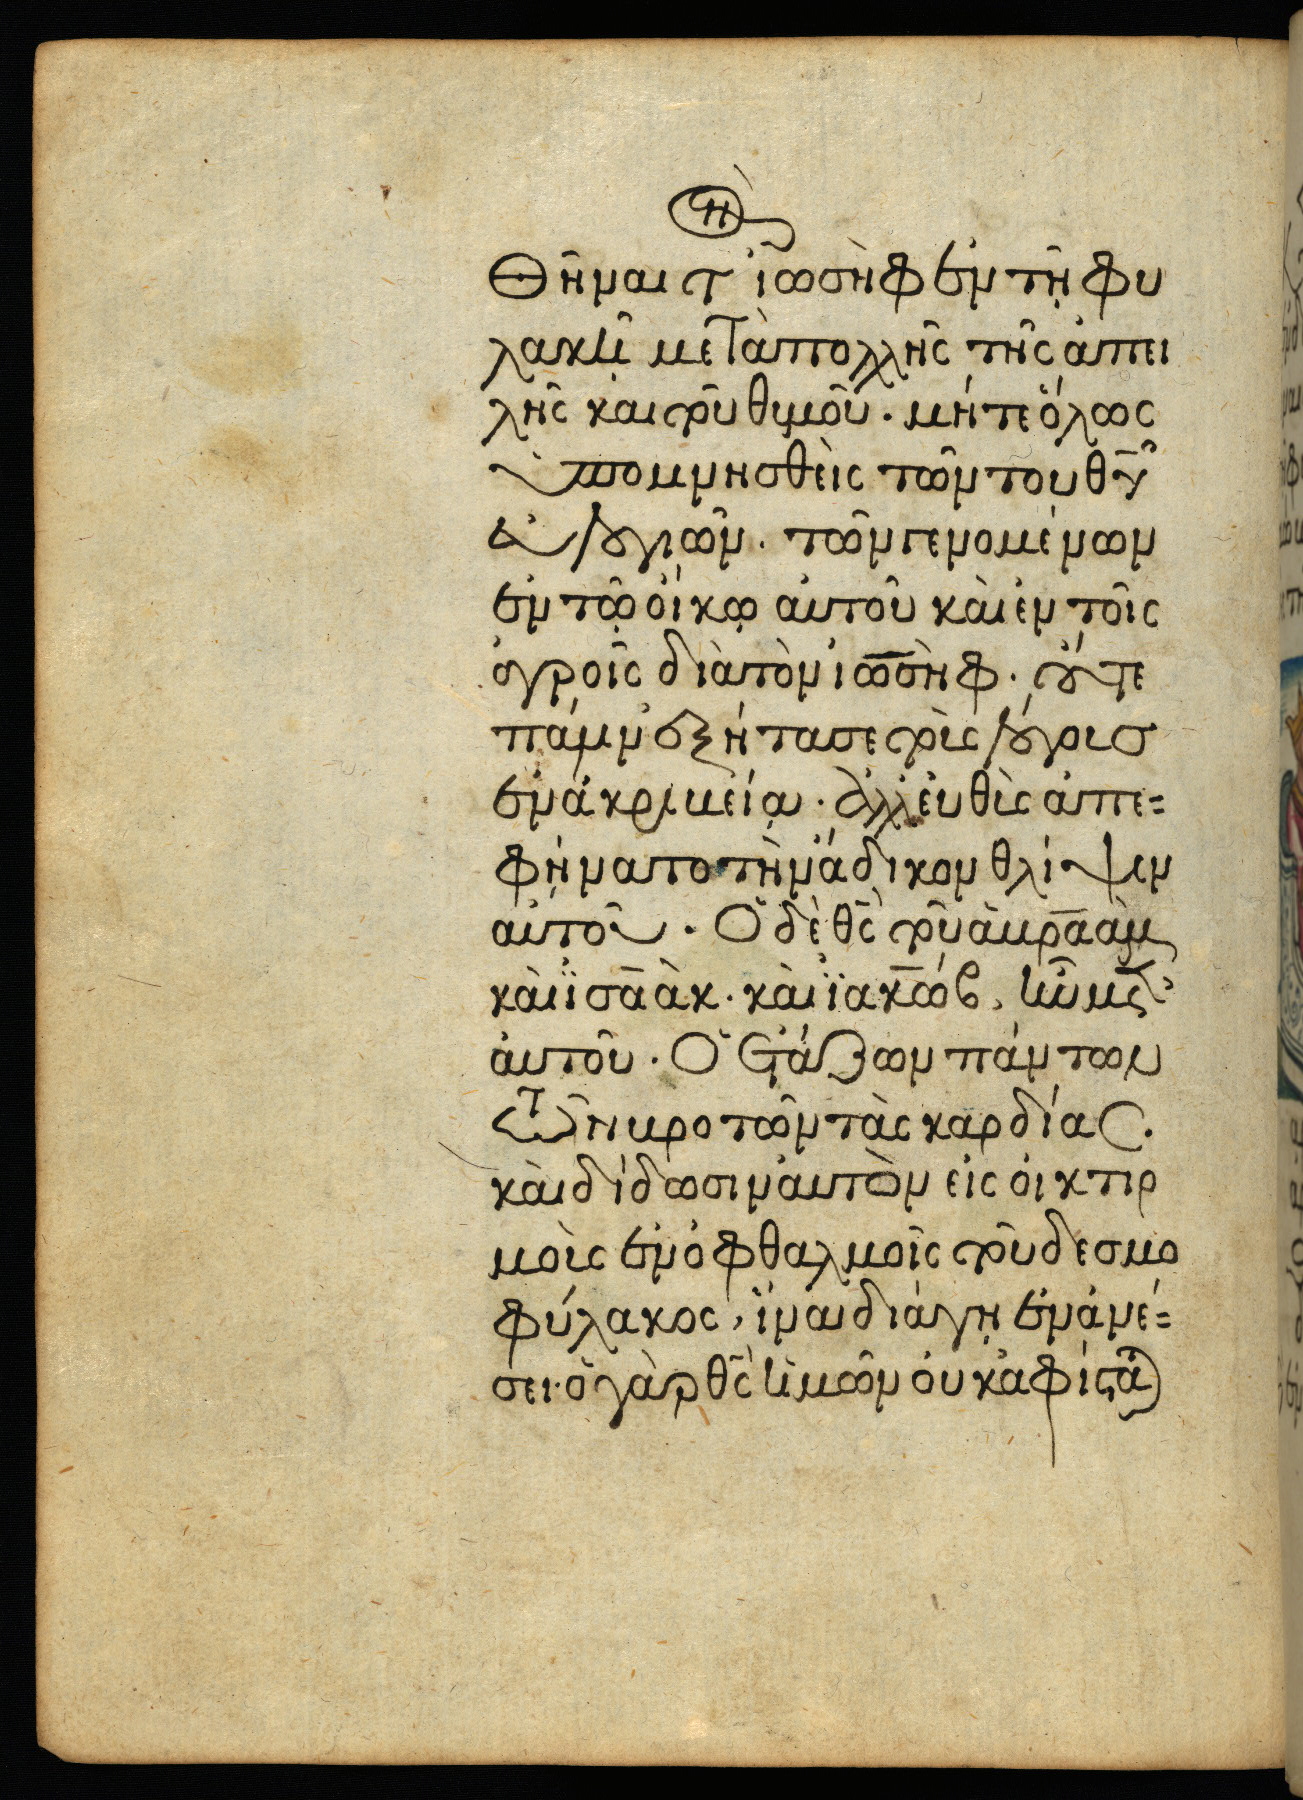 η
Θῆναι τ ἰωσὴφ ἐν τῇ φυ
λακῆ μετὰ πολλῆς τῆς ἀπει
λῆς καὶ τοῦ θυμοῦ. μήτε ὅλως
ὑπομνησθεὶς τῶν του θῦ
εὐλογιῶν. τῶν γενομένων
ἐν τῷ οἴκῳ αὐτοῦ καὶ ἐν τοῖς
ἀγροῖς διὰ τὸν ἰωσὴφ. οὔτε
πάνυ ἐξήτασε τοὺς λόγους
ἐν ἀκριβεία. ἀλλ' εὐθὺς ἀπε=
φήνατο τὴν ἄδικον θλίψιν
αὐτοῦ. Ὁ δὲ θς τοῦ ἀβραὰμ
καὶ ἰσαὰκ. καὶ ἰακώβ, ἦν μετ'
αὐτοῦ. Ὁ ἐτάζων πάντων
τῶν βροτῶν τὰς καρδίας.
καὶ δίδωσιν αὐτὸν εἰς οἰκτιρ
μοὺς ἐν ὀφθαλμοῖς τοῦ δεσμο
φύλακος, ἵνα διάγῃ ἐν ἀνέ=
σει. ὁ γὰρ θς ἡμῶν οὐκ ἀφίστα